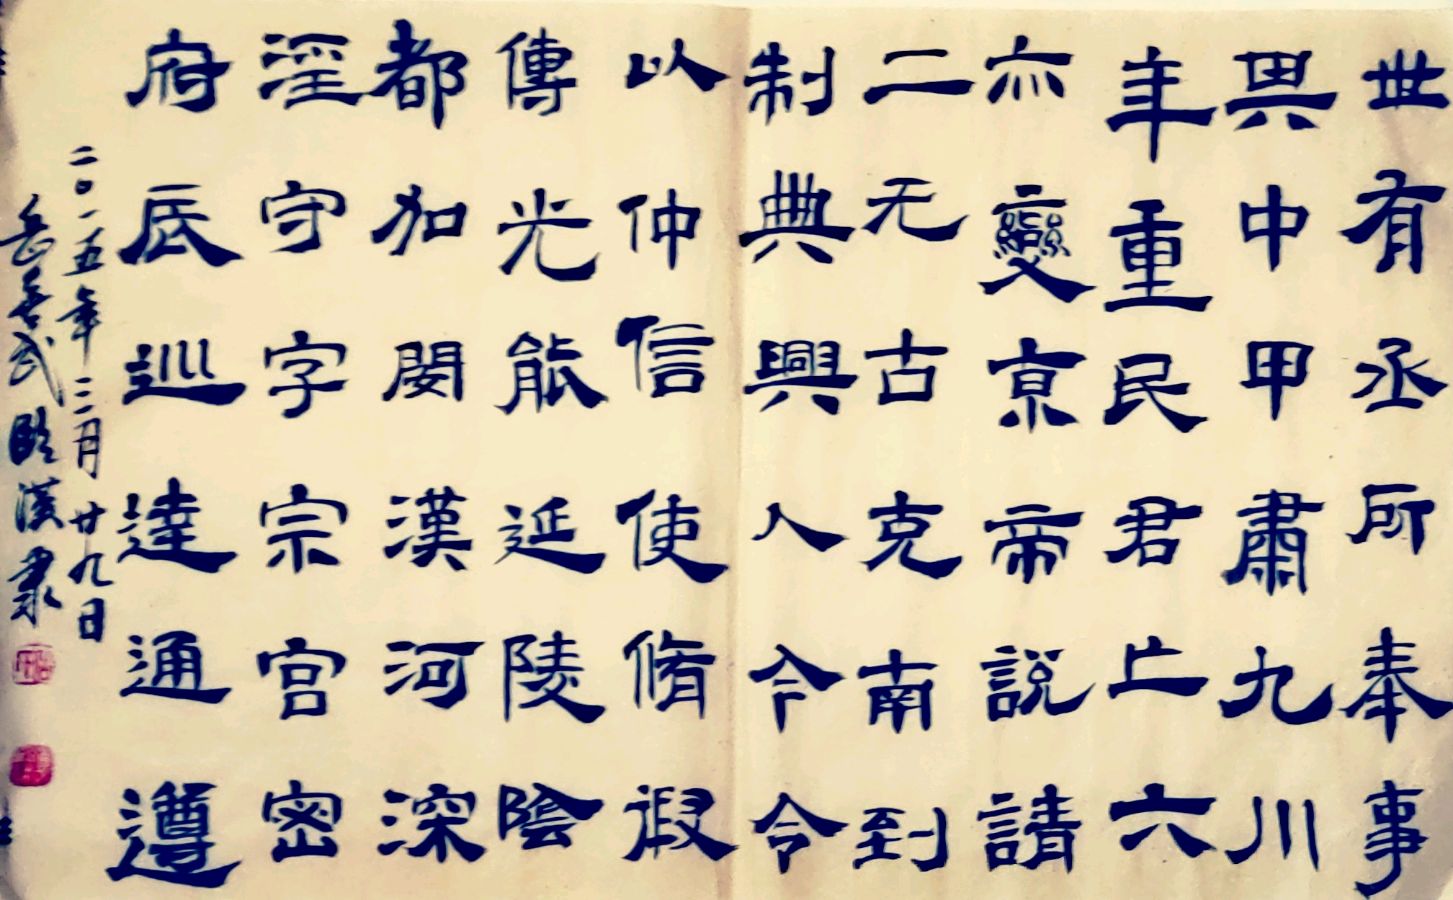 世有丞所奉事
異中甲肅九川
年重民君上六
亦變京帝說請
二无古克南到
制典興人今令
以仲信使脩假
傳光能延陵陰
都加閔漢河深
淫守字宗宫密
府底巡達通遵
二〇一五年三月廿九日
岳善武臨漢隶